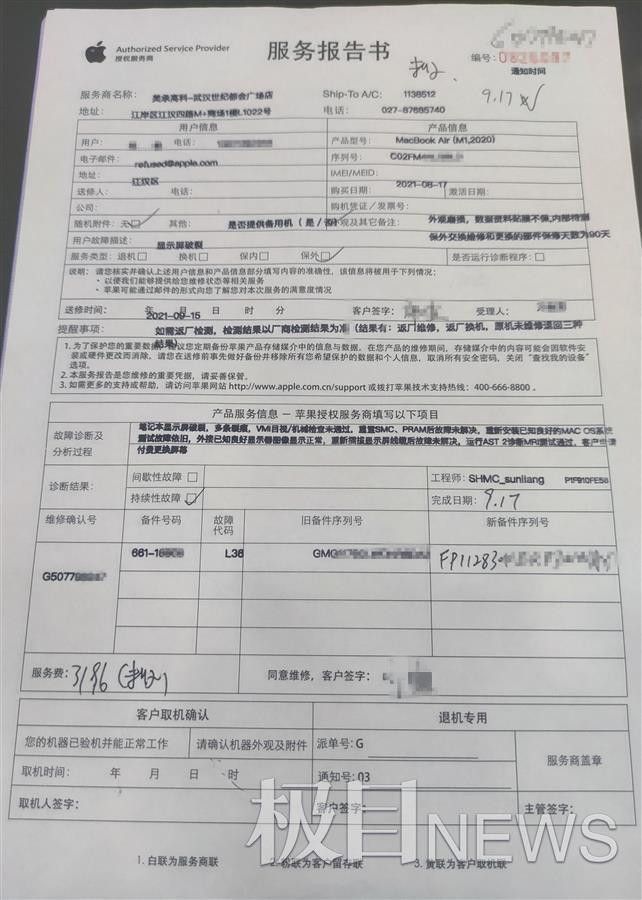 Authorized Service Provider
授权服务商
服务报告书
编号:
通知时间
9.17
服务商名称: 美承高科-武汉世纪都会广场店 Ship-To A/C: 1138512
地址: 江岸区江汉四路M+商场1楼L1022号 电话: 027-87695740
用户信息 产品信息
用户: 电话: 产品型号: MacBook Air (M1,2020)
电子邮件: refused@apple.com 序列号: C02FM
地址: 江汉区 IMEI/MEID:
送修人: 电话: 购买日期: 2021-08-17 激活日期:
公司: 购机凭证／发票号:
随机附件: 无 其他: 是否提供备用机（是／否） 外观及其它备注: 外观磨损，数据资料贴膜不保,内部待测
用户故障描述: 显示屏破裂 保外交换维修和更换的部件保修天数为90天
服务类型: 退机 换机 保内 保外 是否运行诊断程序:
说明: 请您核实并确认上述用户信息和产品信息部分填写内容的准确性，该信息将被用于下列情况:
・以便我们能够提供给您维修状态等相关服务
・苹果可能通过邮件的形式向您了解您对本次服务的满意度情况
送修时间: 年 月 日 时 分 客户签字: 受理人:
2021-09-15
提醒事项: 如需返厂检测，检测结果以厂商检测结果为准（结果有：返厂维修，返厂换机，原机未维修退回三种
结果）
1. 为了保护您的重要数据，建议您定期备份苹果产品存储媒介中的信息与数据。在您产品的维修期间，存储媒介中的内容可能会因软件安
装或硬件更改而消除，请您在送修前事先做好备份并移除所有您希望保护的数据和个人信息，取消所有安全密码，关闭“查找我的设备”
选项。
2. 本服务报告是您维修的重要凭据，请妥善保管。
3. 如需更多的支持或帮助，请访问苹果网站 http://www.apple.com.cn/support 或拨打苹果技术支持热线：400-666-8800 。
产品服务信息 － 苹果授权服务商填写以下项目
故障诊断及
分析过程
笔记本显示屏破裂，多条裂痕，VMI目视/机械检查未通过，重置SMC、PRAM后故障未解决，重新安装已知良好的MAC OS系统
测试故障依旧，外接已知良好显示器图像显示正常，重新插拔显示屏线缆后故障未解决，运行AST 2诊断MRI测试通过，客户申请
付费更换屏幕
诊断结果: 间歇性故障 工程师: SHMC_sunliang P1F910FE56
持续性故障 完成日期: 9.17
维修确认号 备件号码 故障代码 旧备件序列号 新备件序列号
G5077 661-1 L36 GMG FP11283
服务费: 3196 同意维修，客户签字:
客户取机确认 退机专用
您的机器已验机并能正常工作 请确认机器外观及附件 派单号: G 服务商盖章
取机时间: 年 月 日 时 通知号: 03
取机人签字: 客户签字: 主管签字:
极目NEWS
1. 白联为服务商联 2. 粉联为客户留存联 3. 黄联为客户取机联